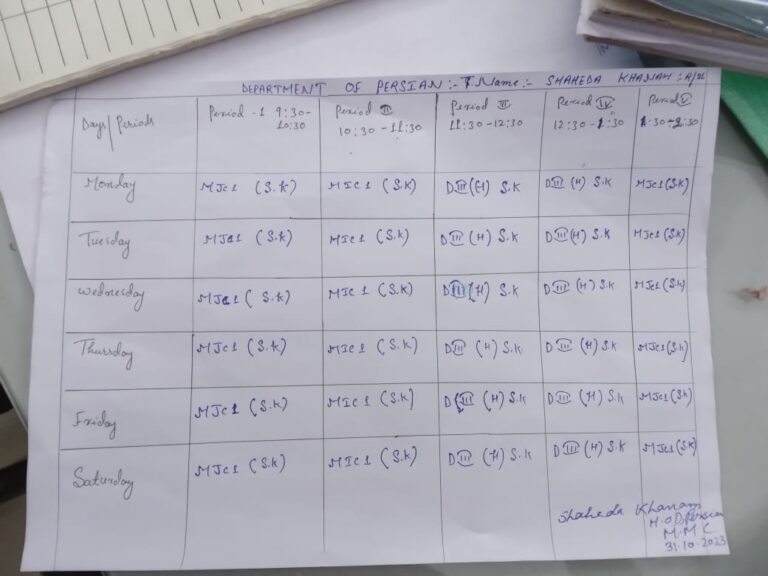 DEPARTMENT OF PERSIAN:- T. Name:- SHAHEDA KHANAM :
Days/Periods Period -1 9:30-10:30 Period II 10:30-11:30 Period III 11:30-12:30 Period IV 12:30-1:30 Period V 1:30-2:30
Monday MJC1 (S.K) MIC1 (S.K) D III (H) S.K D III (H) S.K MJC1 (S.K)
Tuesday MJC1 (S.K) MIC1 (S.K) D III (H) S.K D III (H) S.K MJC1 (S.K)
Wednesday MJC1 (S.K) MIC 1 (S.K) D III (H) S.K D III (H) S.K MJC1 (S.K)
Thursday MJC1 (S.K) MIC 1 (S.K) D III (H) S.K D III (H) S.K MJC1 (S.K)
Friday MJC1 (S.K) MIC 1 (S.K) D III (H) S.K D III (H) S.K MJC1 (S.K)
Saturday MJC1 (S.K) MIC 1 (S.K) D III (H) S.K D III (H) S.K MJC1 (S.K)
Shaheda Khanam
H.O.D, Persian
M.M.C
31.10.2023